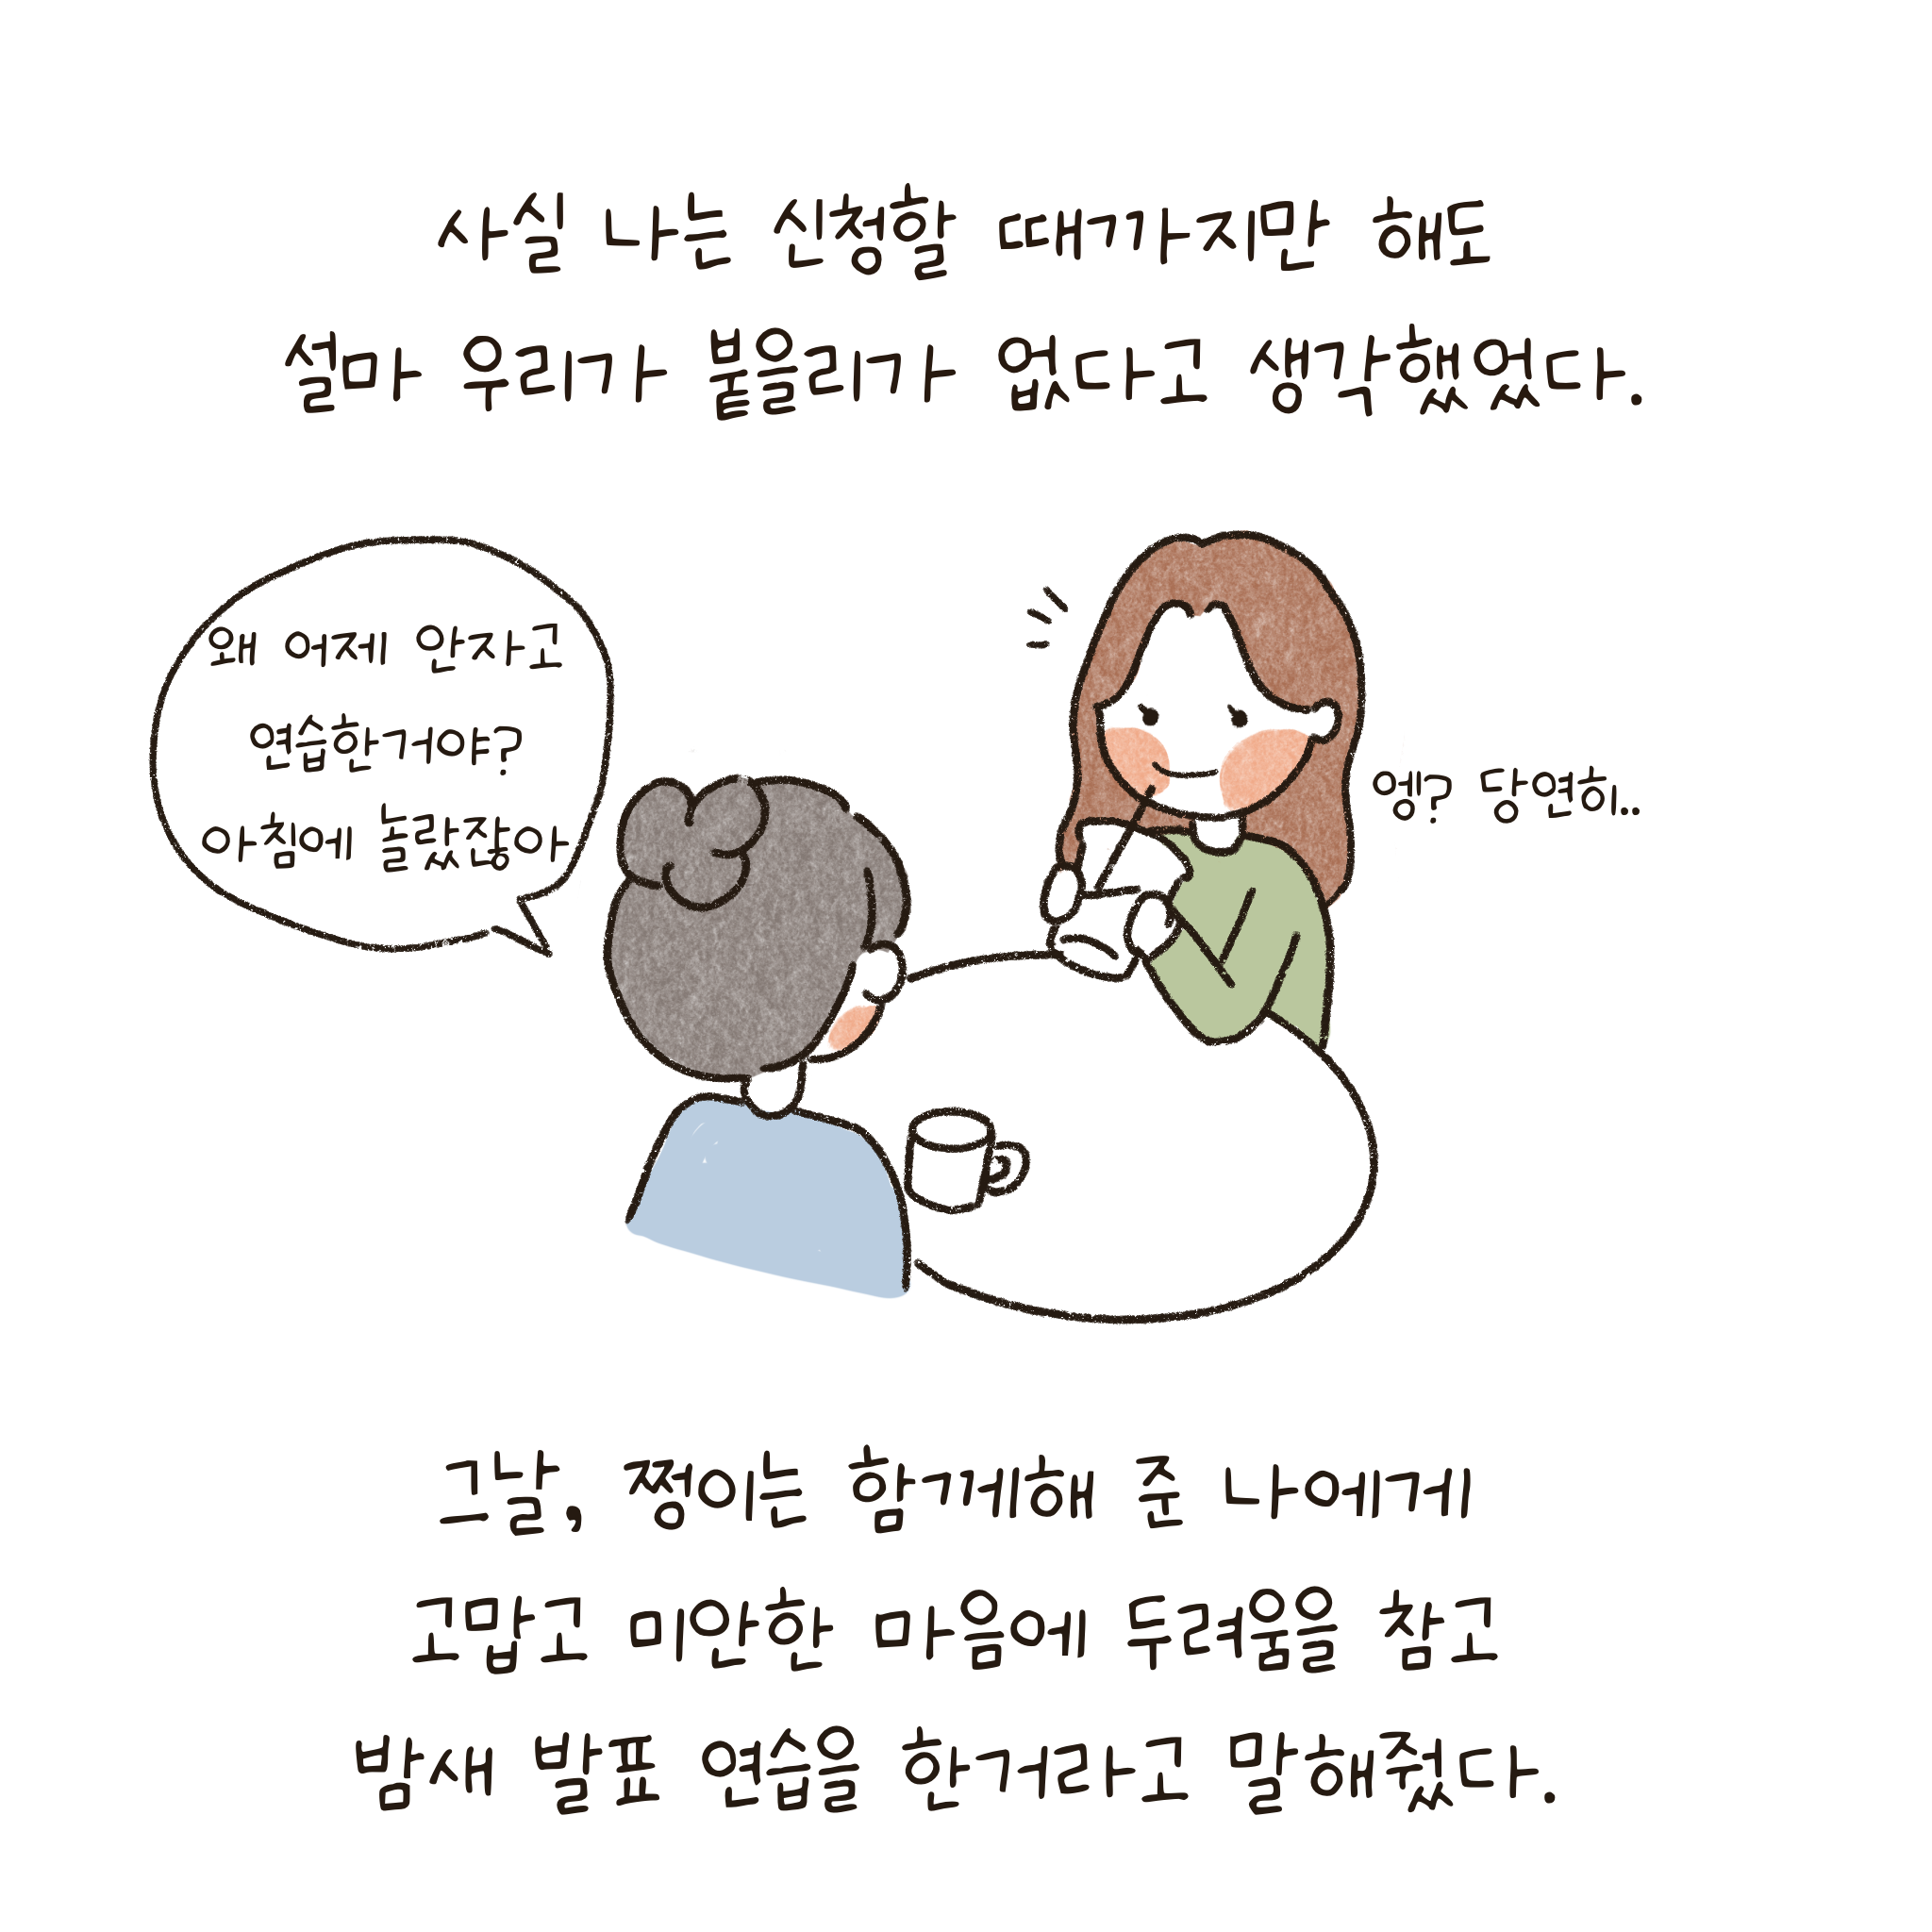 사실 나는 신청할 때까지만 해도
설마 우리가 붙을리가 없다고 생각했었다.
왜 어제 안자고
연습한거야?
아침에 놀랐잖아
엥? 당연히..
그날, 쩡이는 함께해 준 나에게
고맙고 미안한 마음에 두려움을 참고
밤새 발표 연습을 한거라고 말해줬다.